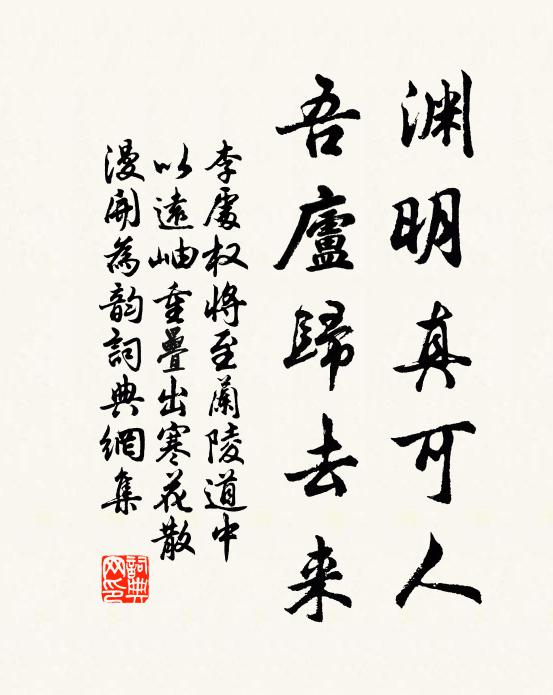 渊明真可人
吾廬歸去来
李處权将至蘭陵道中
以遠岫重疊出寒花散
漫開為韵詞典網集
詞典网印